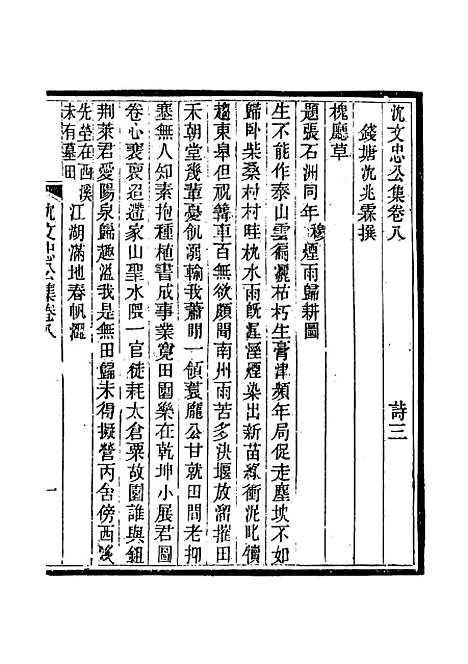 沈文忠公集卷八　詩三
錢塘沈兆霖撰
槐廳草
題張石洲同年穆煙雨歸耕圖
生不能作泰山雲徧灑枯朽生膏津頻年局促走塵坱不如
歸臥柴桑村村畦枕水雨旣渥溼煙染出新苗綠衝泥叱犢
趨東皋但祝篝車百無欲頗聞南州雨苦多決堰放溜摧田
禾朝堂幾輩憂飢溺輸我蕭閒一領蓑龐公甘就田間老抑
塞無人知素抱種植書成事業寬田園樂在乾坤小展君圖
卷心裴裵迢遞家山聖水隈一官徒耗太倉粟故園誰與鉏
荆萊君愛陽泉歸趣溢我是無田歸未得擬營丙舍傍西溪
先塋在西溪未有墓田江湖滿地春帆澀
沈文忠公集卷八　一